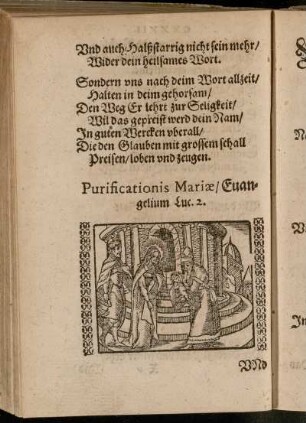 Vnd auch Halßstarrig nicht sein mehr/
Wider dein heilsames Wort.
Sondern vns nach deim Wort allzeit/
Halten in deim gehorsam/
Den Weg Er lehrt zur Seligkeit/
Wil das gepreist werd dein Nam/
In guten Wercken vberall/
Die den Glauben mit grossem schall
Preisen/ loben vnd zeugen.
Purificationis Mariæ/ Euan-
gelium Luc. 2.
VNd